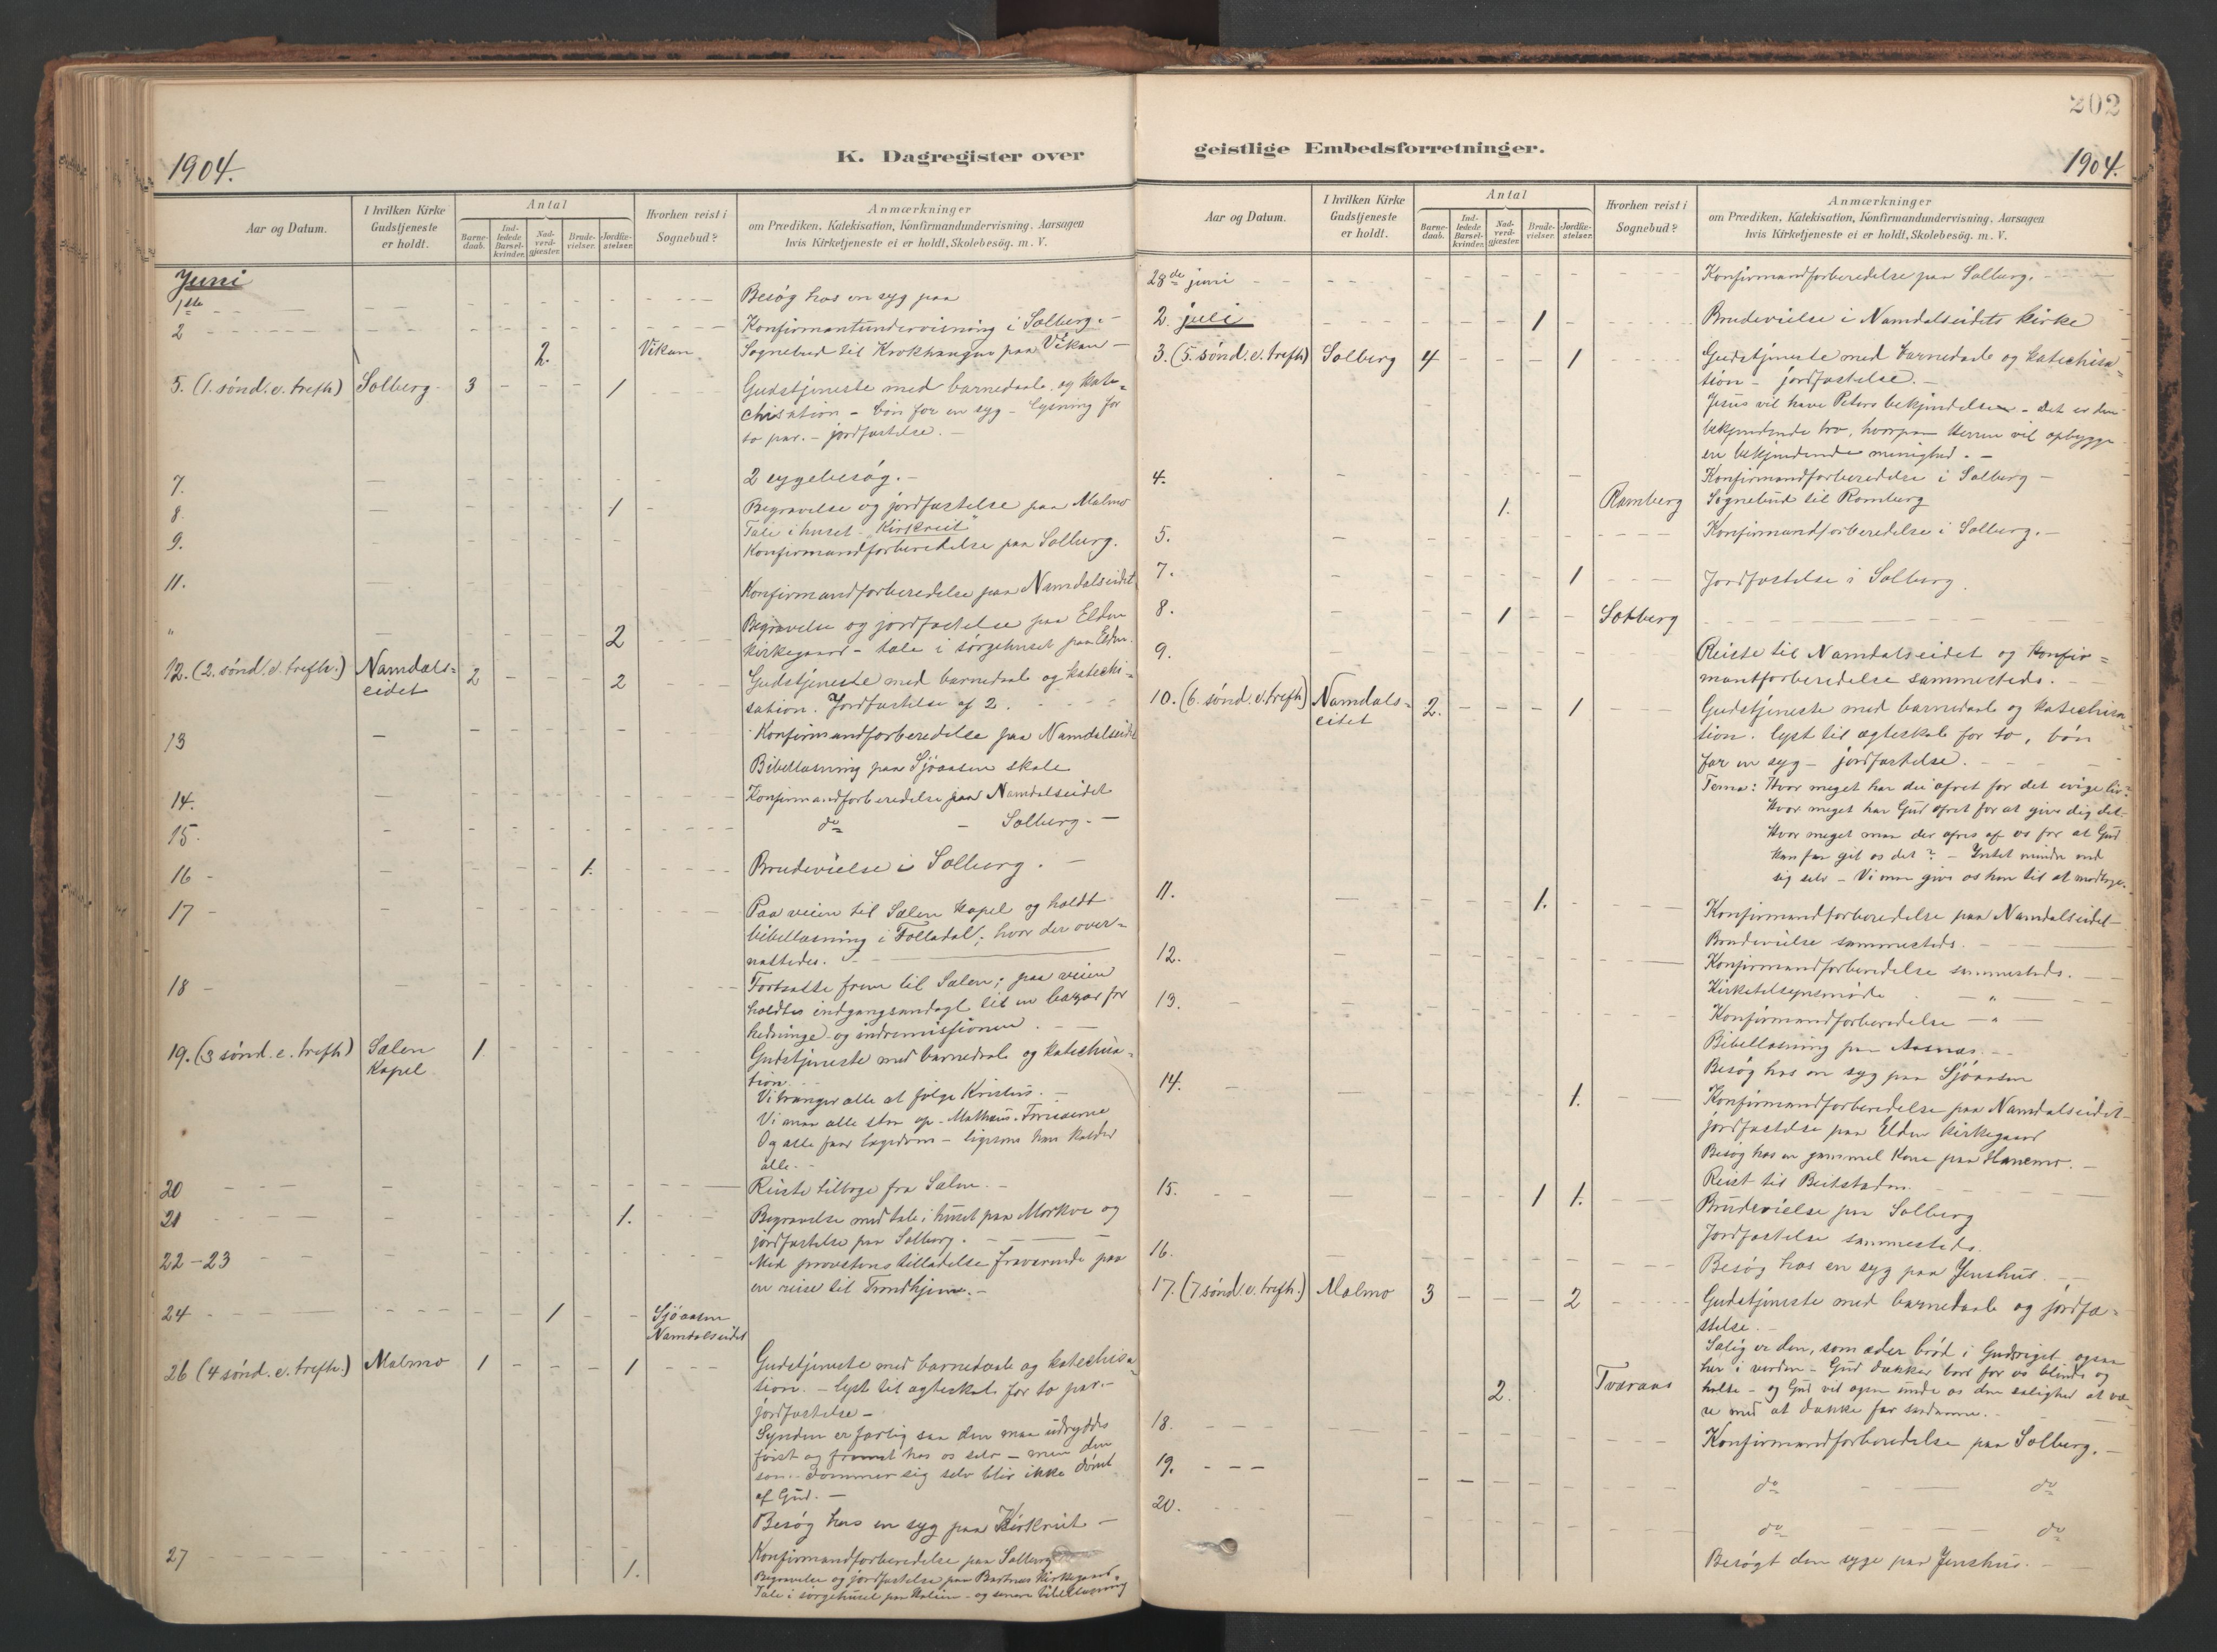 202
1904.
K. Dagregister over
geistlige Embedsforretninger.
1904.
Aar og Datum.
I hvilken Kirke Gudstjeneste er holdt.
Antal
Barne-daab.
Ind-ledede Barsel-kvinder.
Nad-verd-gjæster.
Brude-vielser.
Jordfæ-stelser.
Hvorhen reist i Sognebud?
Anmærkninger
om Prædiken, Katekisation, Konfirmandundervisning, Aarsagen
hvis Kirketjeneste ei er holdt, Skolebesög. m. V.
Juni
1ste
Besøg hos en syg paa
2
Konfirmantundervisning i Solberg. -
2. Vikan Sognebud til Krokhaugen paa Vikan -
5. (1. sønd. e. trefh) Solberg 3 1 Gudstjeneste med barnedaab og kate-
chisation - bøn for en syg - lysning for
to par. - jordfæstelse. -
7. 2 sygebesøg. -
8. 1 Begravelse og jordfæstelse paa Malmo
Tale i huset "Kirkreit"
9. Konfirmandforberedelse paa Solberg.
11. Konfirmandforberedelse paa Namdalseidet
" 2 Begravelse og jordfæstelse paa Elden
kirkegaard - tale i sørgehuset paa Elden.
12. (2. sønd. e. trefh.) Namdals-eidet 2 2 Gudstjeneste med barnedaab og katechi-
sation. Jordfæstelse af 2.
13 Konfirmandforberedelse paa Namdalseidet
Bibellæsning paa Sjøaasen skole
14. Konfirmandforberedelse paa Namdalseidet
15. do - Solberg. -
16 - 1. Brudevielse i Solberg. -
17 - Paa veien til Sælen kapel og holdt
bibellæsning i Folladal; hvor der over-
nattedes.
18 - Fortsatte frem til Sælen; paa veien
holdtes indgangsandagt til en bazar for
hedninge- og indremissionen.
19. (3 sønd. e. trefh) Sælen Kapel 1 Gudstjeneste med barnedaab og katechisa-
tion.
Vi trænger alle at følge Kristus. -
Vi maa alle staa op - Mathæus. Farisæerne
Og alle faar lægedom - ligesom han kalder
alle. -
20 Reiste tilbage fra Sælen. -
21 1. Begravelse med tale i huset paa Morkve og
jordfæstelse paa Solberg.
22-23 Med provstens tilladelse fraværende paa
en reise til Trondhjem. -
24 - 1 Sjøaasen Namdalseidet
26 (4 sønd. e. trefh.) Malmo 1 1 Gudstjeneste med barnedaab og katechisa-
tion. - lyst til ægteskab for to par. -
jordfæstelse -
Synden er farlig saa den maa udryddes
først og fremst hos os selv - men den
som dømmer sig selv blir ikke dømt
af Gud. -
Besøg hos en syg paa Kirkreit -
27 Konfirmandforberedelse paa Solberg
1. Begravelse og jordfæstelse paa Bartnes Kirkegaard.
Tale i sørgehuset paa - og senere bibellæsning
Aar og Datum.
I hvilken Kirke Gudstjeneste er holdt.
Antal
Barne-daab.
Ind-ledede Barsel-kvinder.
Nad-verd-gjæster.
Brude-vielser.
Jordfæ-stelser.
Hvorhen reist i Sognebud?
Anmærkninger
om Prædiken, Katekisation, Konfirmandundervisning, Aarsagen
hvis Kirketjeneste ei er holdt, Skolebesög. m. V.
28de juni Konfirmandforberedelse paa Solberg.
2. juli 1 Brudevielse i Namdalseidets kirke
3. (5. sønd. e. trefh) Solberg 4 1 Gudstjeneste med barnedaab og katechisa-
tion - jordfæstelse. -
Jesus vil have Peters bekjendelse - det er den
bekjendende tro, hvorpaa Herren vil opbygge
en bekjendende menighed. -
4. Konfirmandforberedelse i Solberg -
1. Ramberg Sognebud til Ramberg
5. Konfirmandforberedelse i Solberg. -
7. 1 Jordfæstelse i Solberg.
8. 1 Solberg
9. Reiste til Namdalseidet og konfir-
mantforberedelse sammesteds.
10. (6. sønd. e. trefh) Namdals-eidet 2. 1 Gudstjeneste med barnedaab og katechisa-
tion. lyst til ægteskab for to, bøn
for en syg - jordfæstelse.
Tema: Hvor meget har du ofret for det evige liv?
Hvor meget har Gud ofret for at give dig det -
Hvor meget maa der ofres af os for at Gud
kan faa git os det? - Intet mindre end
sig selv - Vi maa give os hen til at modtage.
11. 1. Konfirmandforberedelse paa Namdalseidet
Brudevielse sammesteds.
12. Konfirmandforberedelse sammesteds.
Kirketilsynsmøde - " -
13. Konfirmandforberedelse - " -
Bibellæsning paa Aasnes. -
Besøg hos en syg paa Sjøaasen
14. 1. Konfirmandforberedelse paa Namdalseidet
jordfæstelse paa Elden kirkegaard
Besøg hos en gammel Kone paa Hanemo. -
15. Reist til Beitstaden
1 1. Brudevielse paa Solberg
Jordfæstelse sammesteds.
16. Besøg hos en syg paa Jenshus.
17. (7 sønd. e. trefh.) Malmo 3 2 Gudstjeneste med barnedaab og jordfæ-
stelse. -
Salig er den, som æder brød i Gudsriget ogsaa
her i verden - Gud dækker bord for os blinde og
halte - og Gud vil ogsaa unde os den salighed at væ-
2. Tværaas re med at dække for
18. Konfirmandforberedelse paa Solberg. -
19. do do
20. do do
Besøgt den syge paa Jenshus. -